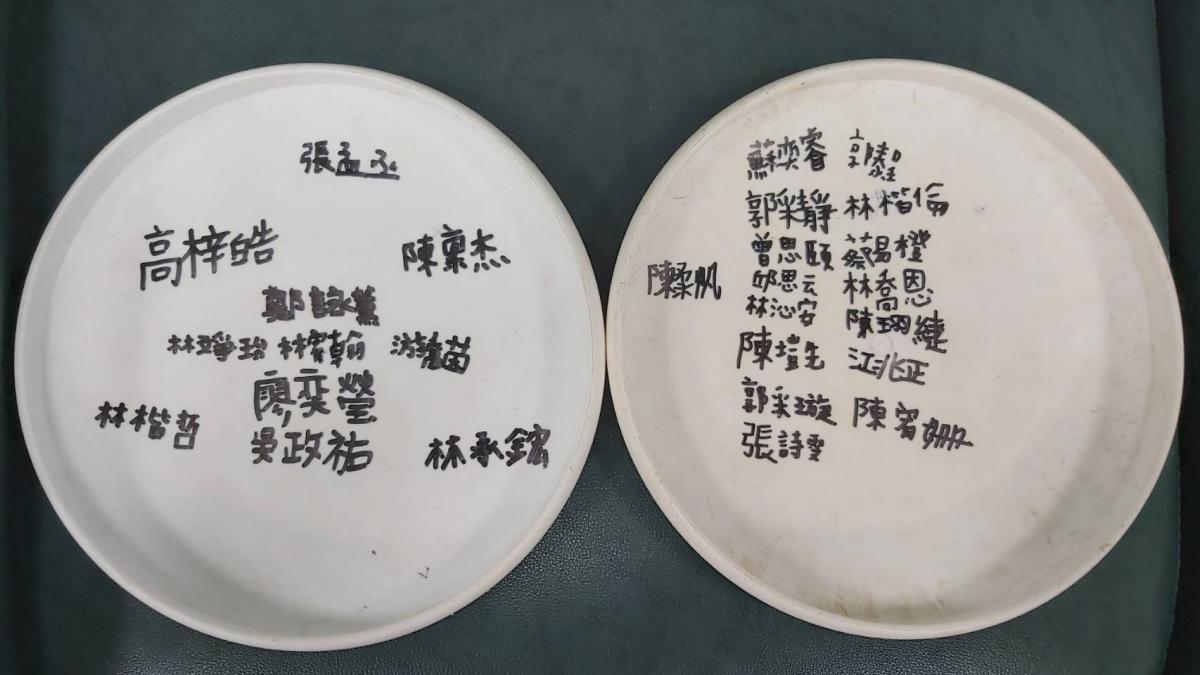 張孟丞
高梓皓 陳稟杰
鄭詠薰
林琤珆 林宥翰 游
廖奕瑩
林楷哲 吳政祐 林承鋐
蘇奕睿 郭
郭采靜 林楷倫
曾思頤 蔡易橙
陳柔帆 邱思云 林喬恩
林沁安 陳珝緁
陳塏先 江兆正
郭采璇 陳宥姍
張詩雯